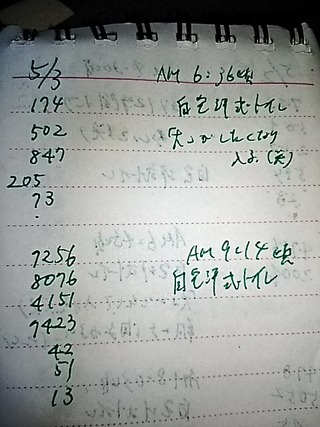 5/3 AM 6:36頃
174 自宅洋式トイレ
502
847
205
73
.
7256 AM 9:14頃
8076 自宅洋式トイレ
4151
7423
42
51
13